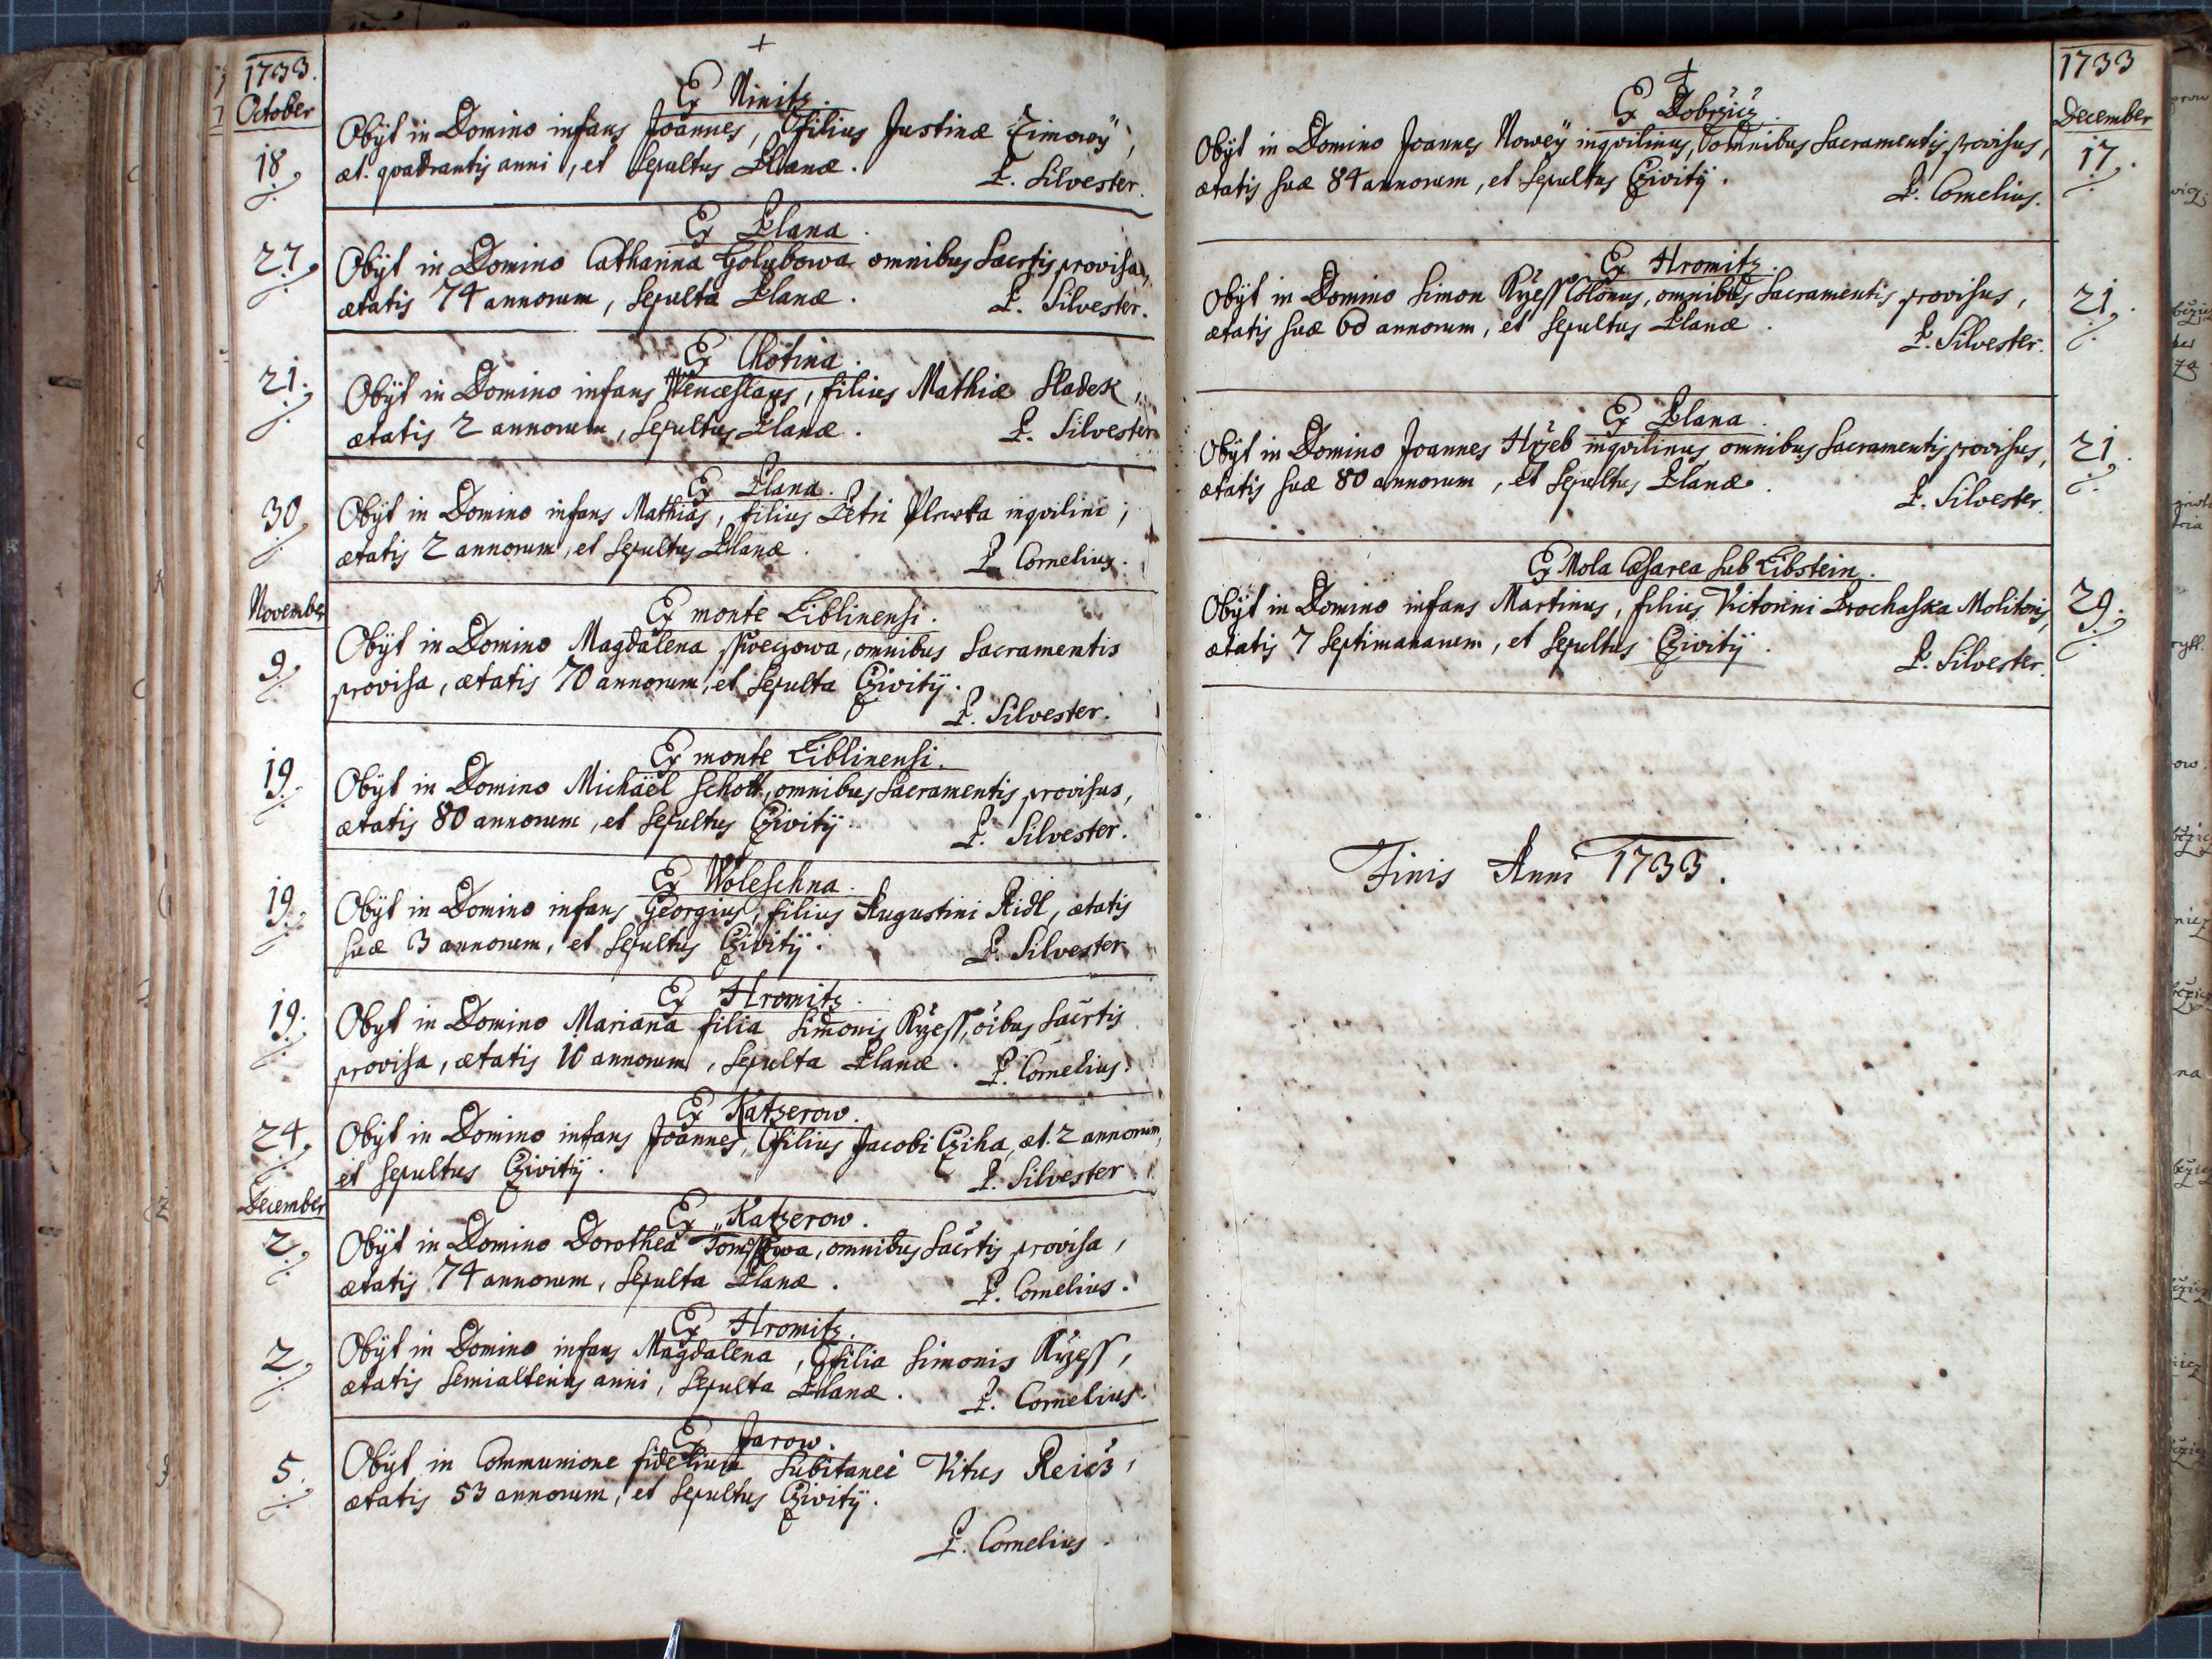 1733.
October
+
Ex Ninitz.
18. Obÿt in Domino infans Joannes, filius Justinæ Zimowÿ,
æt. quadrantis anni, et sepultus Planæ.
P. Silvester.
Ex Plana.
27. Obÿt in Domino Catharina Holubowa omnibus Sacrtis provisa,
ætatis 74 annorum, sepulta Planæ.
P. Silvester.
Ex Chotina.
21. Obÿt in Domino infans Wenceslaus, filius Mathiæ Sladek,
ætatis 2 annorum, sepultus Planæ.
P. Silvester
Ex Plana.
30 Obÿt in Domino infans Mathias, filius Petri inqvilini,
ætatis 2 annorum, et sepultus Planæ.
P. Cornelius.
November
Ex monte Liblinensi.
9. Obÿt in Domino Magdalena, omnibus Sacramentis
provisa, ætatis 70 annorum, et sepulta Cziwitÿ.
P. Silvester.
Ex monte Liblinensi.
19. Obÿt in Domino Michaël Schott, omnibus Sacramentis provisus,
ætatis 80 annorum, et sepultus Cziwitÿ.
P. Silvester.
Ex Woleschna.
19. Obÿt in Domino infans Georgius, filius Augustini Ridl, ætatis
suæ 3 annorum, et sepultus Cziwitÿ.
P. Silvester
Ex Hromitz.
19. Obÿt in Domino Mariana filia Simonis Ržžess, oibus Sacrtis
provisa, ætatis 10 annorum, sepulta Planæ.
P. Cornelius.
Ex Katzerow.
24. Obÿt in Domino infans Joannes, filius Jacobi Cziha, æt. 2 annorum,
et sepultus Cziwitÿ.
P. Silvester
December
Ex Katzerow.
2. Obÿt in Domino Dorothea, omnibus Sacrtis provisa,
ætatis 74 annorum, sepulta Planæ.
P. Cornelius.
Ex Hromitz.
2. Obÿt in Domino infans Magdalena, filia Simonis
ætatis semialterius anni, sepulta Planæ.
P. Cornelius.
Ex Jarow.
5. Obÿt in Communione fidelium subitanei Vitus Reicz,
ætatis 53 annorum, et sepultus Cziwitÿ.
P. Cornelius
1733
December
Ex Dobržicz.
Obÿt in Domino Joannes Noweÿ inqvilinus, omnibus Sacramentis provisus, 17.
ætatis suæ 84 annorum, et sepultus Cziwitÿ.
P. Cornelius.
Ex Hromitz.
Obÿt in Domino Simon Colonus, omnibus Sacramentis provisus, 21.
ætatis suæ 60 annorum, et sepultus Planæ.
P. Silvester.
Ex Plana.
Obÿt in Domino Joannes Hržeb inqvilinus omnibus Sacramentis provisus, 21.
ætatis suæ 80 annorum, et sepultus Planæ.
P. Silvester.
Ex Mola Cæsarea sub Libstein.
Obÿt in Domino infans Martinus, filius Victorini Prochaska Molitoris, 29.
ætatis 7 septimanarum, et sepultus Cziwitÿ.
P. Silvester.
Finis Anni 1733.